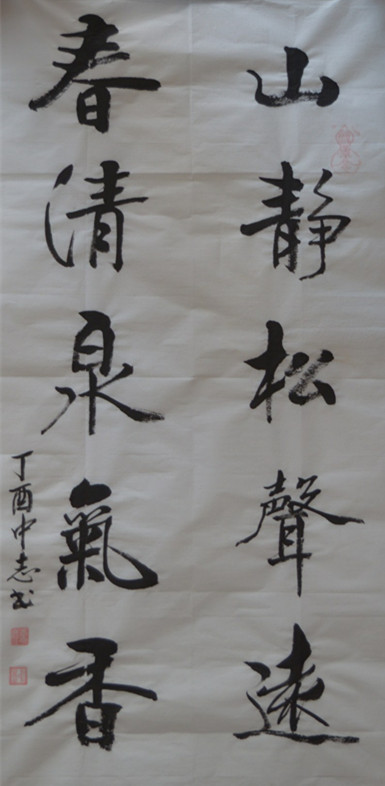 山靜松聲遠
春清泉氣香
丁酉中志书